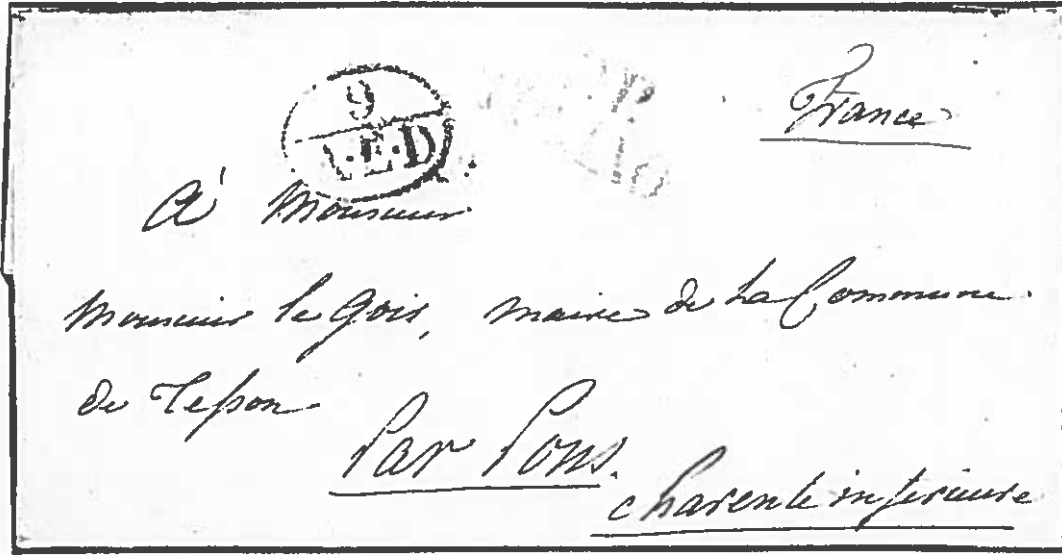 France
9
.E.D
À Monsieur
Monsieur le Gois, maire de La Commune
de Tesson
Par Pons.
charente inférieure